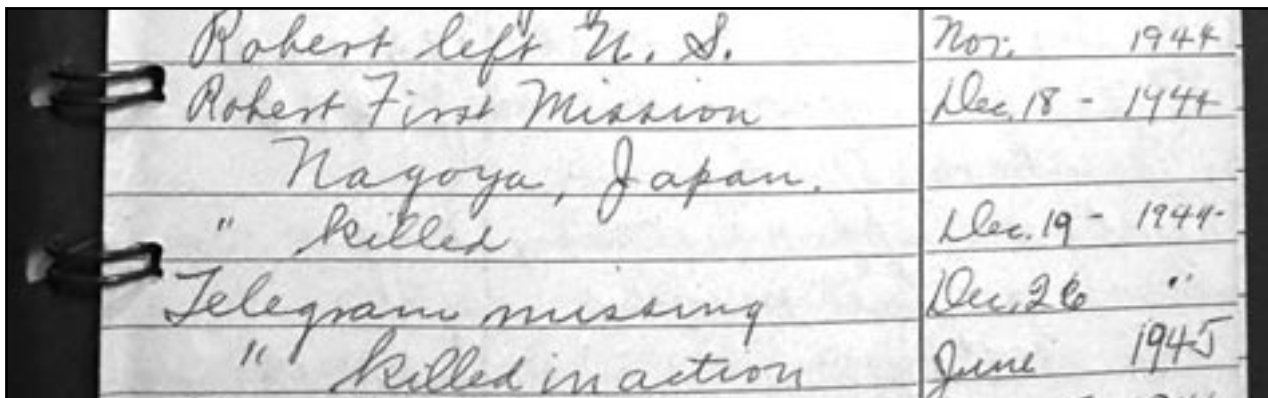 Robert left U. S. Nov. 1944
Robert First Mission Dec. 18 - 1944
Nagoya, Japan.
" killed Dec. 19 - 1944
Telegram missing Dec. 26 "
" killed in action June 1945